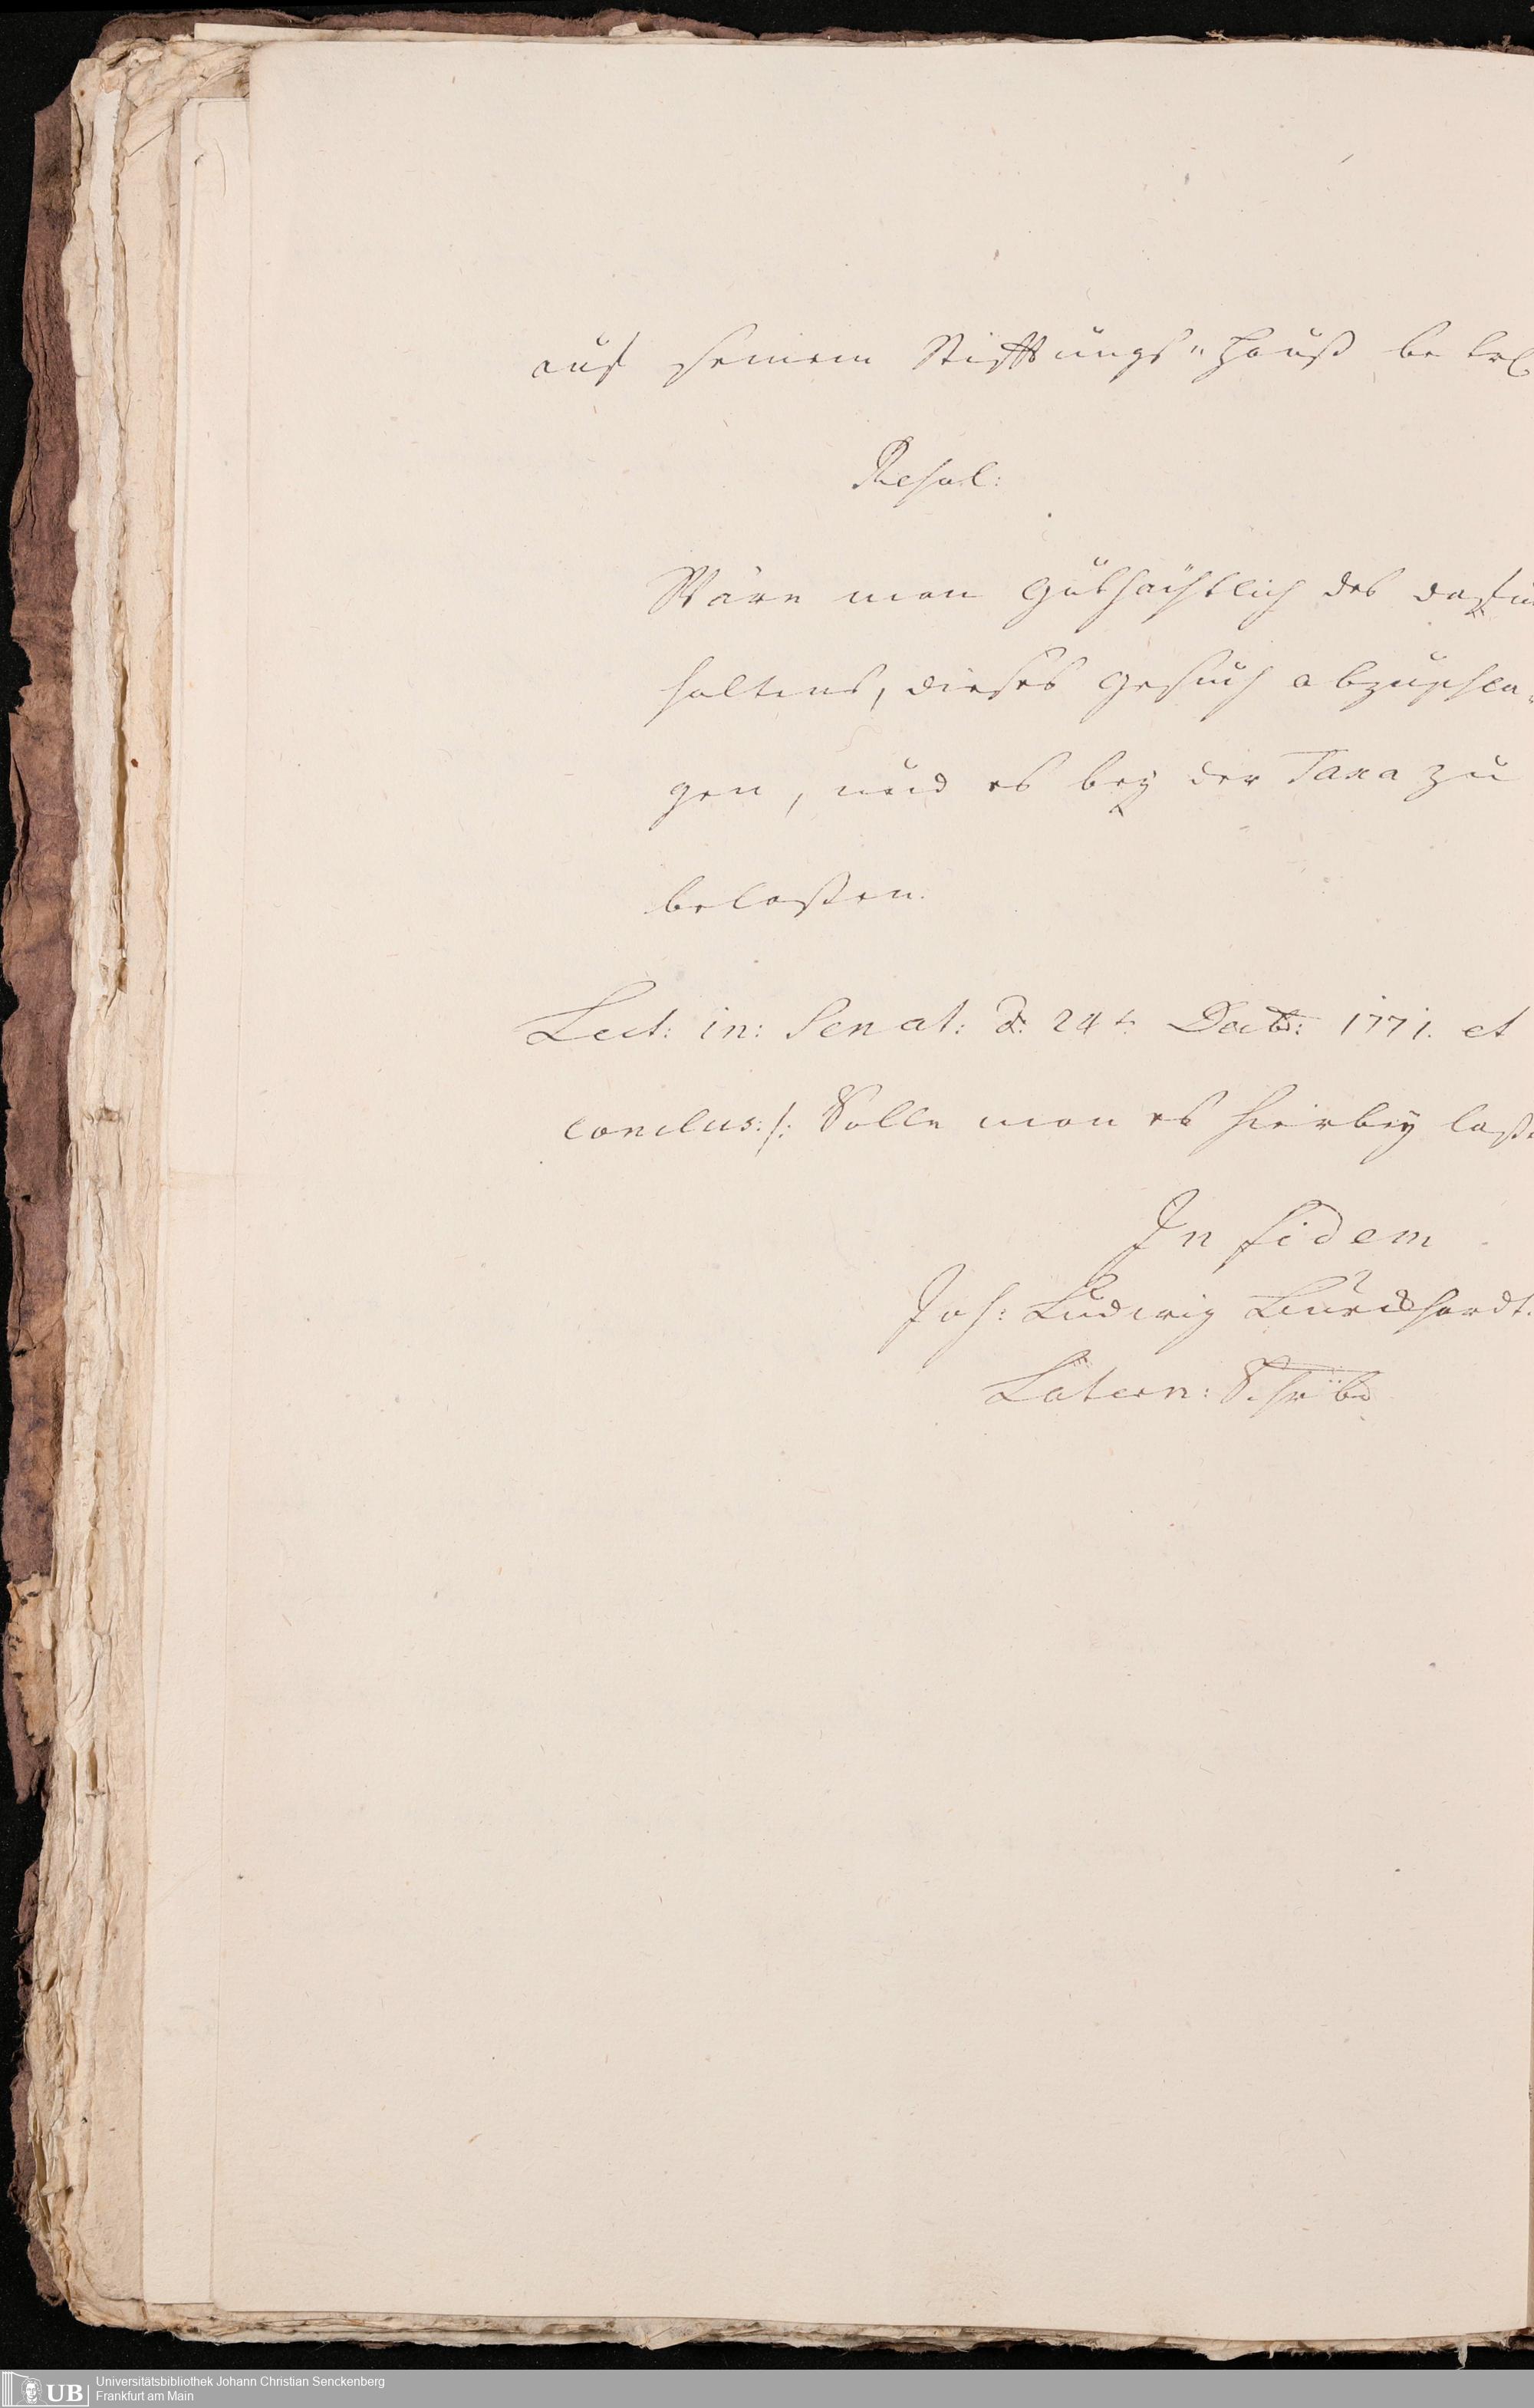 auf seinem Stifftungs" Hauß betr
Resol:
Wäre man gutsächtlich des dafür
haltens, dieses Gesuch abzuschla¬
gen, und es bey der Taxa zu
belaßen.
Lect: in: Senat: d: 24t. Dectb: 1771. et
conclus: /: Solle man es hierbey laße
In fidem
Joh: Ludwig Burckhardt.
Latern: Schrbr
UB Universitätsbibliothek Johann Christian Senckenberg
Frankfurt am Main